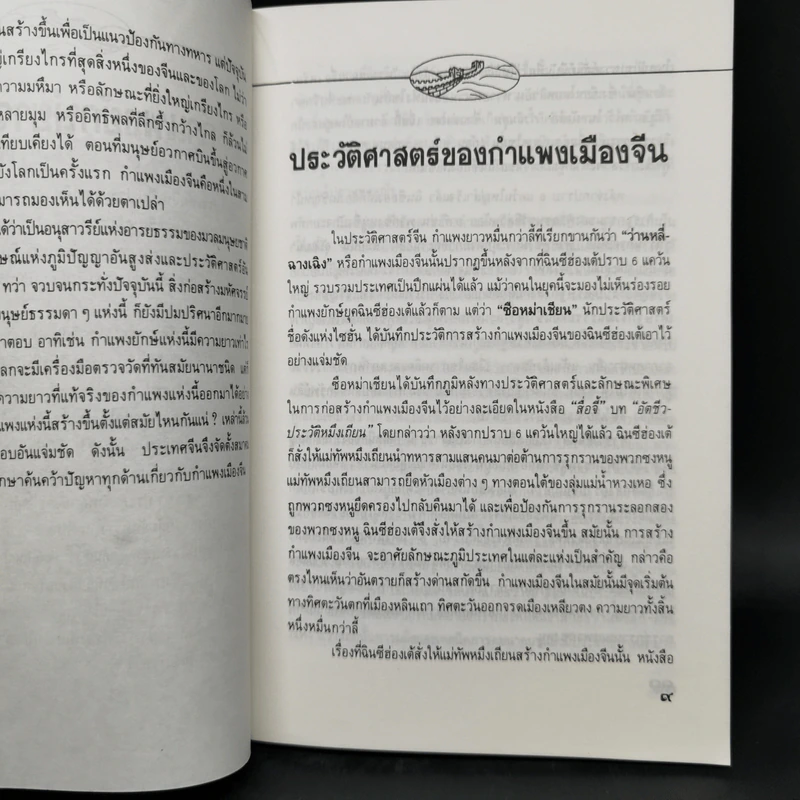 นสร้างขึ้นเพื่อเป็นแนวป้องกันทางทหาร แต่ปัจจุบัน
เกรียงไกรที่สุดสิ่งหนึ่งของจีนและของโลก ไม่ว่า
ความมหึมา หรือลักษณะที่ยิ่งใหญ่เกรียงไกร หรือ
หลายมุม หรืออิทธิพลที่ลึกซึ้งกว้างไกล ก็ล้วนไม่
เทียบเคียงได้ ตอนที่มนุษย์อวกาศบินขึ้นสู่อวกาศ
ยังโลกเป็นครั้งแรก กำแพงเมืองจีนคือหนึ่งในสาม
ารถมองเห็นได้ด้วยตาเปล่า
ได้ว่าเป็นอนุสาวรีย์แห่งอารยธรรมของมวลมนุษยชาติ
ษณ์แห่งภูมิปัญญาอันสูงส่งและประวัติศาสตร์อัน
ทว่า จวบจนกระทั่งปัจจุบันนี้ สิ่งก่อสร้างมหัศจรรย์
นุษย์ธรรมดา ๆ แห่งนี้ ก็ยังมีปมปริศนาอีกมากมาย
าตอบ อาทิเช่น กำแพงยักษ์แห่งนี้มีความยาวเท่าไร
ลกจะมีเครื่องมือตรวจวัดที่ทันสมัยนานาชนิด แต่ก็
ความยาวที่แท้จริงของกำแพงแห่งนี้ออกมาได้อย่าง
แพงแห่งนี้สร้างขึ้นตั้งแต่สมัยไหนกันแน่ ? เหล่านี้ล้วน
อบอันแจ่มชัด ดังนั้น ประเทศจีนจึงจัดตั้งสมาคม
กษาค้นคว้าปัญหาทุกด้านเกี่ยวกับกำแพงเมืองจีน
ประวัติศาสตร์ของกำแพงเมืองจีน
ในประวัติศาสตร์จีน กำแพงยาวหมื่นกว่าลี้ที่เรียกขานกันว่า “ว่านหลี่-
ฉางเฉิง” หรือกำแพงเมืองจีนนั้นปรากฏขึ้นหลังจากที่ฉินซีฮ่องเต้ปราบ 6 แคว้น
ใหญ่ รวบรวมประเทศเป็นปึกแผ่นได้แล้ว แม้ว่าคนในยุคนี้จะมองไม่เห็นร่องรอย
กำแพงยักษ์ยุคฉินซีฮ่องเต้แล้วก็ตาม แต่ว่า “ซือหม่าเชียน” นักประวัติศาสตร์
ชื่อดังแห่งไซฮั่น ได้บันทึกประวัติการสร้างกำแพงเมืองจีนของฉินซีฮ่องเต้เอาไว้
อย่างแจ่มชัด
ซือหม่าเชียนได้บันทึกภูมิหลังทางประวัติศาสตร์และลักษณะพิเศษ
ในการก่อสร้างกำแพงเมืองจีนไว้อย่างละเอียดในหนังสือ “สื่อจี้” บท “อัตชีว-
ประวัติหมึงเถียน” โดยกล่าวว่า หลังจากปราบ 6 แคว้นใหญ่ได้แล้ว ฉินซีฮ่องเต้
ก็สั่งให้แม่ทัพหมึงเถียนนำทหารสามแสนคนมาต่อต้านการรุกรานของพวกซงหนู
แม่ทัพหมึงเถียนสามารถยึดหัวเมืองต่าง ๆ ทางตอนใต้ของลุ่มแม่น้ำหวงเหอ ซึ่ง
ถูกพวกซงหนูยึดครองไปกลับคืนมาได้ และเพื่อป้องกันการรุกรานระลอกสอง
ของพวกซงหนู ฉินซีฮ่องเต้จึงสั่งให้สร้างกำแพงเมืองจีนขึ้น สมัยนั้น การสร้าง
กำแพงเมืองจีน จะอาศัยลักษณะภูมิประเทศในแต่ละแห่งเป็นสำคัญ กล่าวคือ
ตรงไหนเห็นว่าอันตรายก็สร้างด่านสกัดขึ้น กำแพงเมืองจีนในสมัยนั้นมีจุดเริ่มต้น
ทางทิศตะวันตกที่เมืองหลินเถา ทิศตะวันออกจรดเมืองเหลียวตง ความยาวทั้งสิ้น
หนึ่งหมื่นกว่าลี้
เรื่องที่ฉินซีฮ่องเต้สั่งให้แม่ทัพหมึงเถียนสร้างกำแพงเมืองจีนนั้น หนังสือ
๙